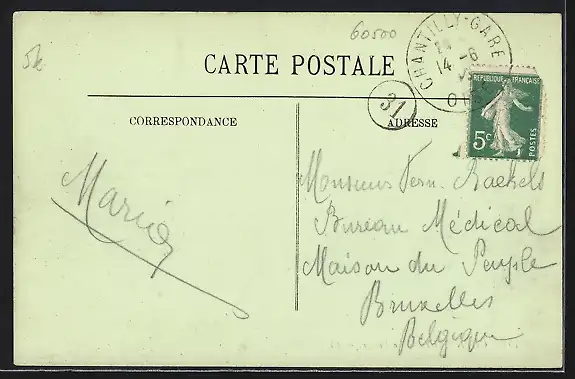 5k
60500
CHANTILLY-GARE
14-6
OISE
CARTE POSTALE
31
RÉPUBLIQUE FRANÇAISE
5c
POSTES
CORRESPONDANCE
ADRESSE
Maria
Monsieur Fern. Rachels
Bureau Médical
Maison du Peuple
Bruxelles
Belgique